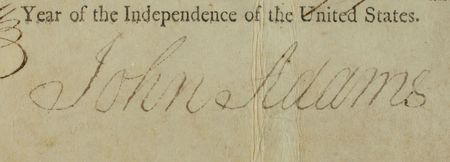 Year of the Independence of the United States.
John Adams